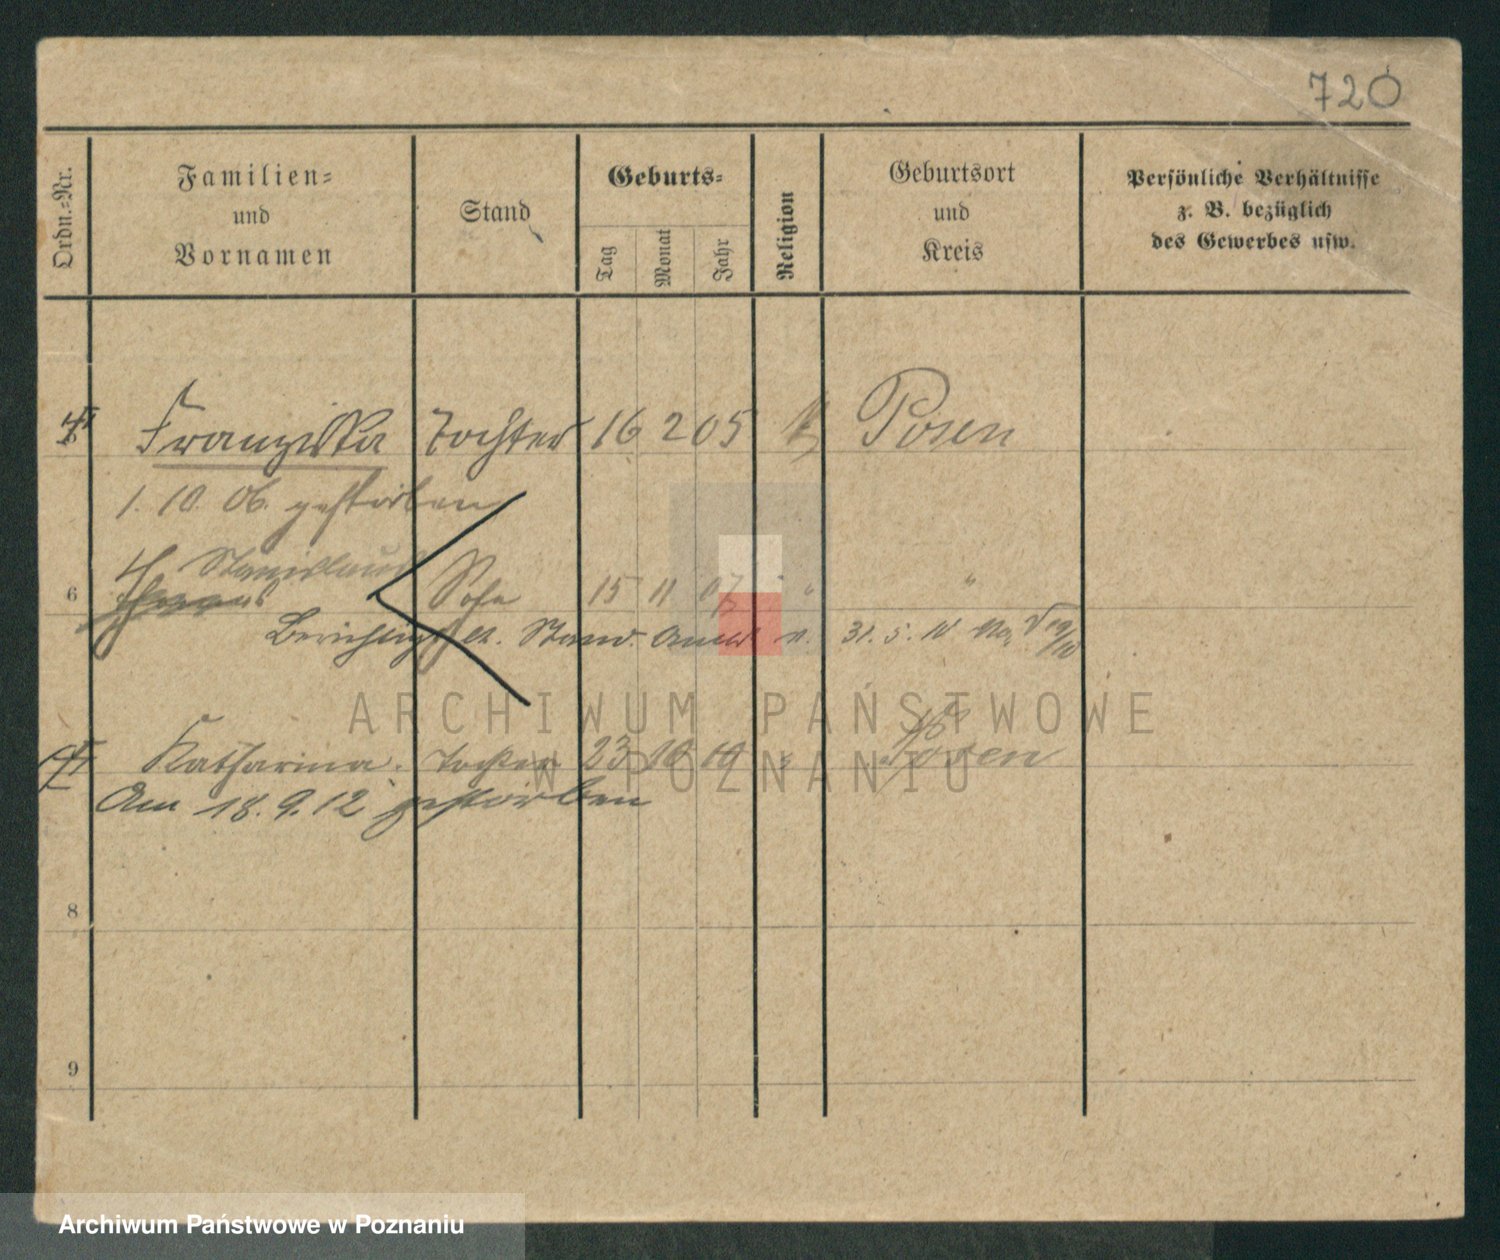 720
Ordn.-Nr.
Familien-
und
Vornamen
Stand
Geburts-
Tag
Monat
Jahr
Religion
Geburtsort
und
Kreis
Persönliche Verhältnisse
z. B. bezüglich
des Gewerbes usw.
Franziska Tochter 16 2 05 k Posen
1. 10. 06. gestorben
Stanislaus
6 Sohn 15 11 07 " "
Berichtigt lt. Stand. Amt v. 31. 5. 10
Katharina. Tochter 23 10 10 " Posen
Am 18. 9. 12 gestorben
8
9
ARCHIWUM PAŃSTWOWE
W POZNANIU
Archiwum Państwowe w Poznaniu